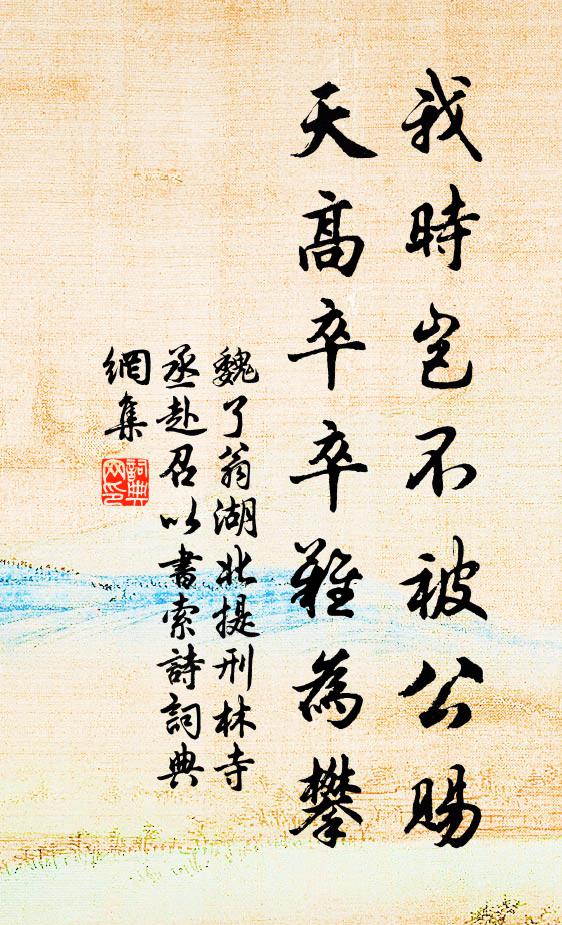 我時豈不被公賜
天高卒卒難為攀
魏了翁湖北提刑林寺
丞赴召以書索詩詞典
網集
詞典網印